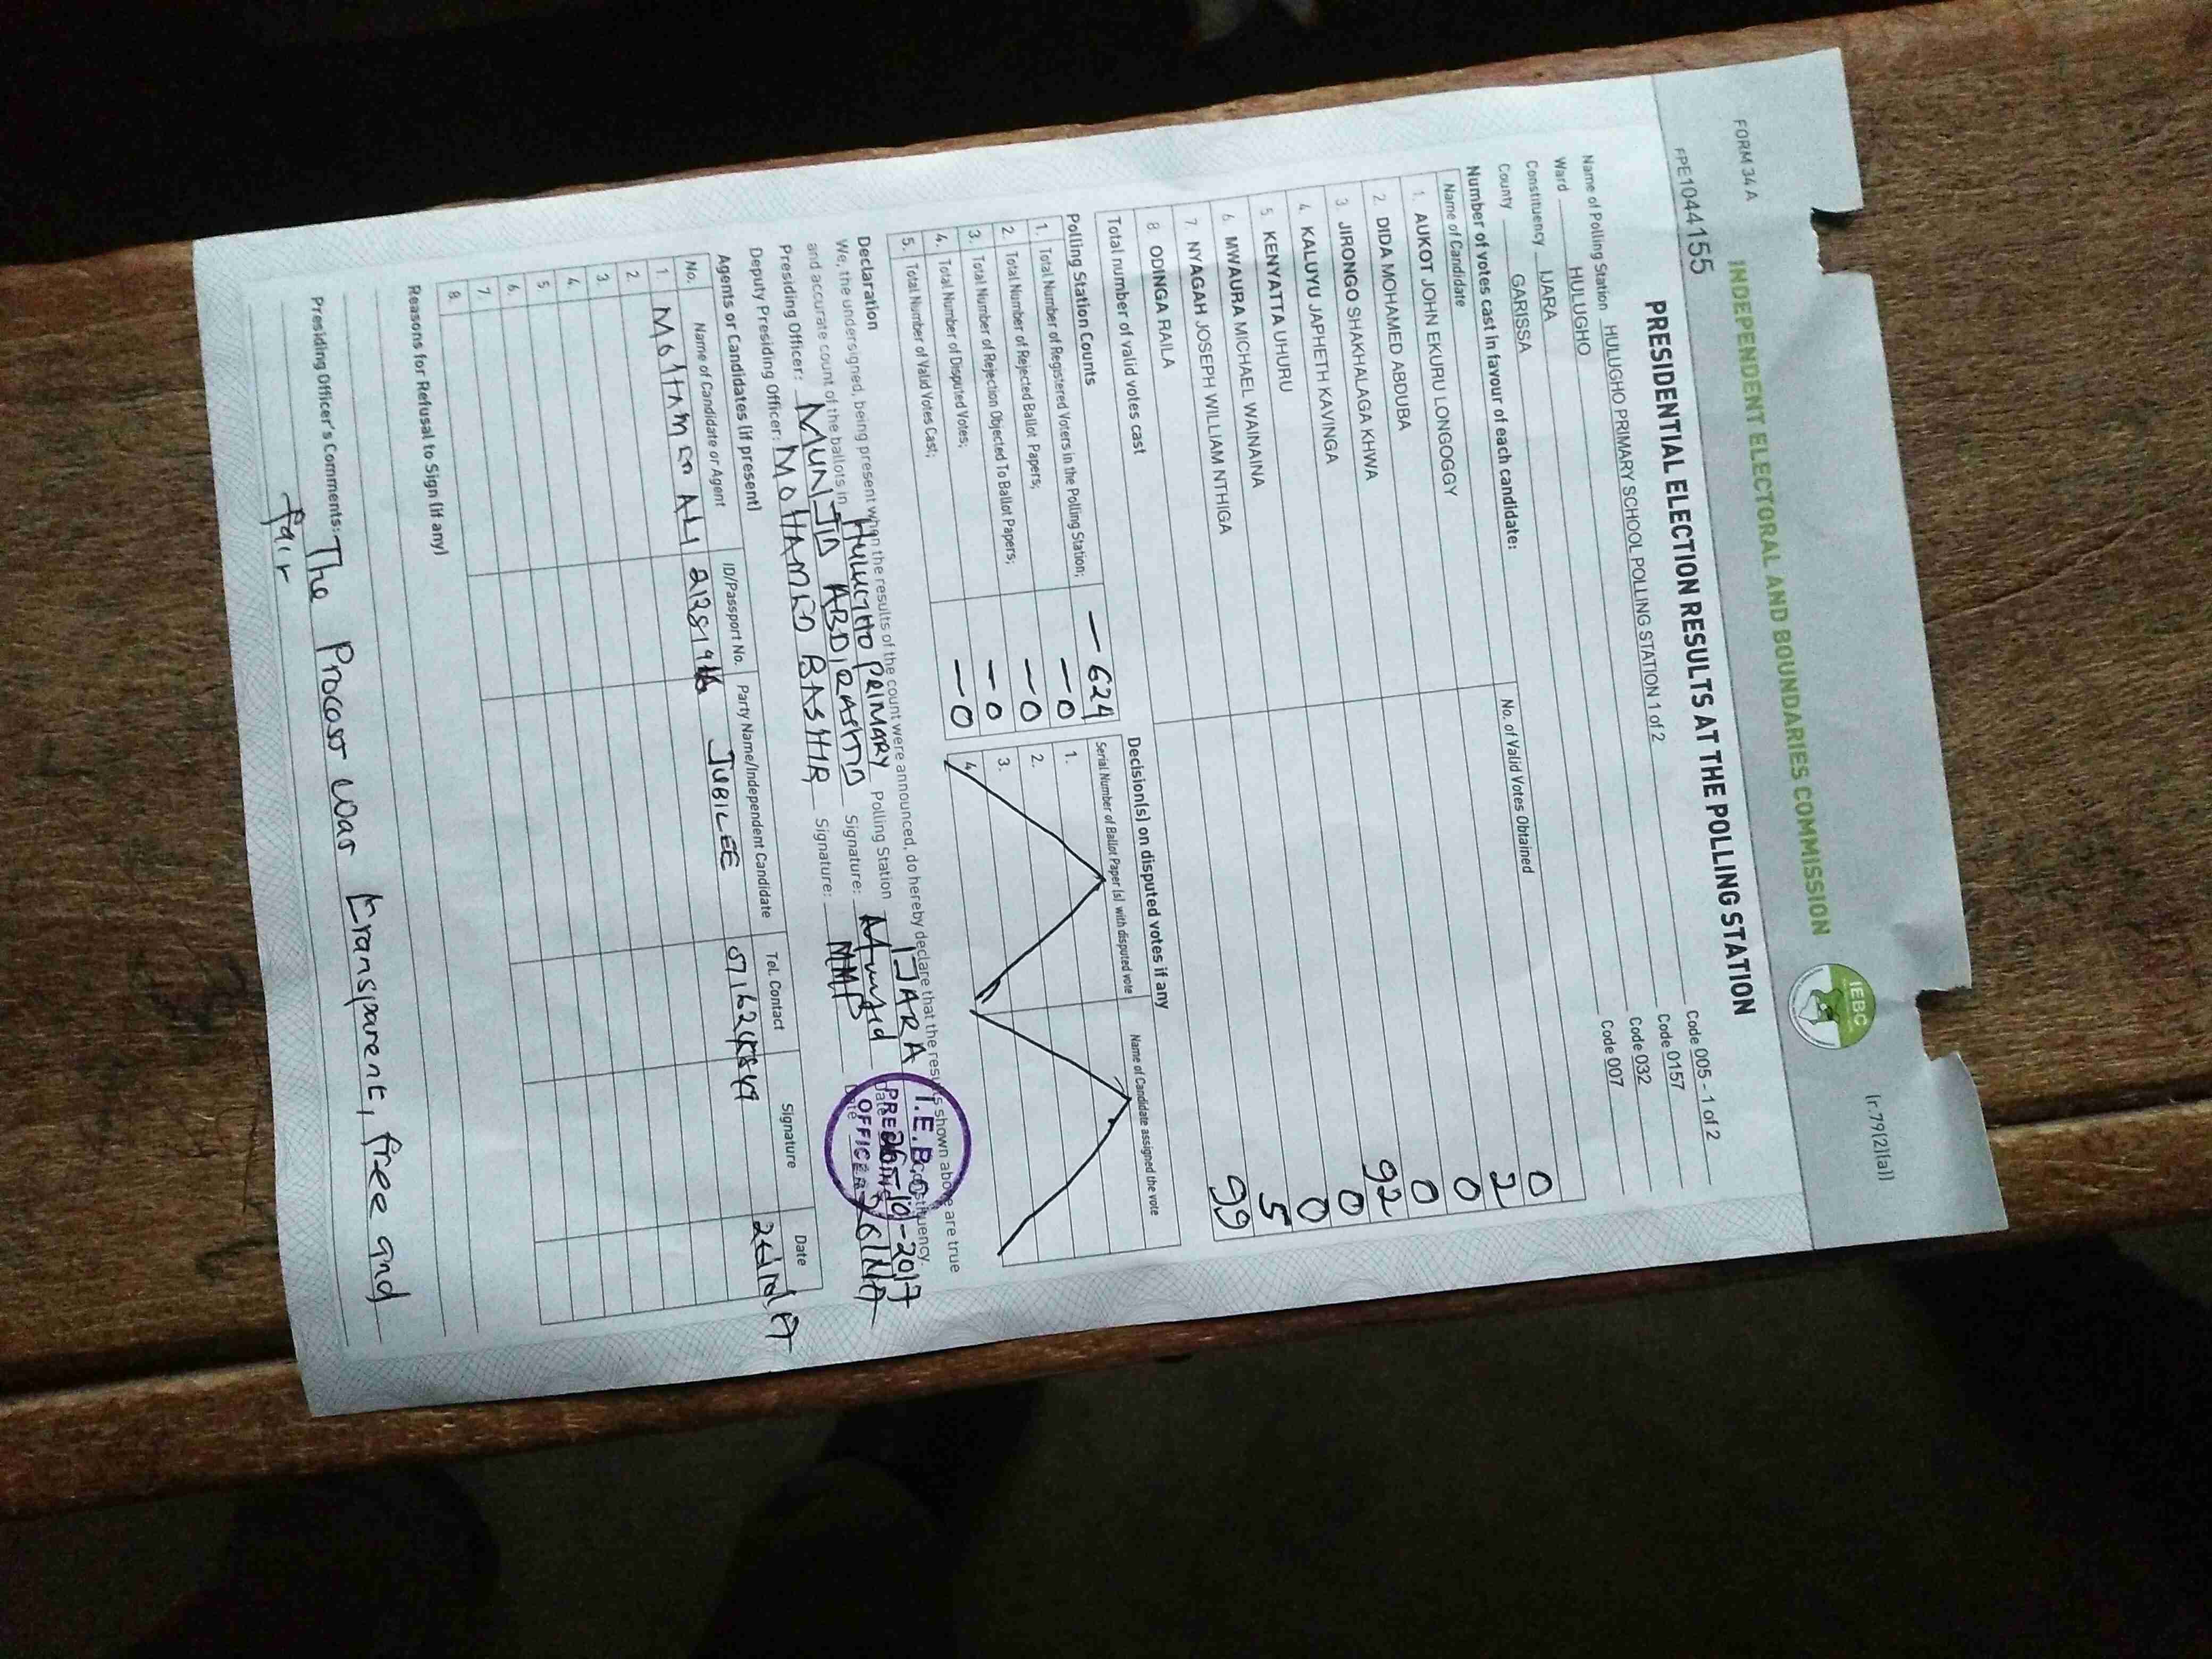 FORM 34 A
(r.79(2)(a))
INDEPENDENT ELECTORAL AND BOUNDARIES COMMISSION
IEBC
FPE1044155
PRESIDENTIAL ELECTION RESULTS AT THE POLLING STATION
Name of Polling Station HULUGHO PRIMARY SCHOOL POLLING STATION 1 of 2 Code 005 - 1 of 2
Ward HULUGHO Code 0157
Constituency IJARA Code 032
County GARISSA Code 007
Number of votes cast in favour of each candidate:
Name of Candidate No. of Valid Votes Obtained
1. AUKOT JOHN EKURU LONGOGGY 0
2. DIDA MOHAMED ABDUBA 2
3. JIRONGO SHAKHALAGA KHWA 0
4. KALUYU JAPHETH KAVINGA 0
5. KENYATTA UHURU 92
6. MWAURA MICHAEL WAINAINA 0
7. NYAGAH JOSEPH WILLIAM NTHIGA 0
8. ODINGA RAILA 5
Total number of valid votes cast 99
Polling Station Counts
1. Total Number of Registered Voters in the Polling Station; - 624
2. Total Number of Rejected Ballot Papers; - 0
3. Total Number of Rejection Objected To Ballot Papers; - 0
4. Total Number of Disputed Votes; - 0
5. Total Number of Valid Votes Cast; - 0
Decision(s) on disputed votes if any
Serial Number of Ballot Paper (s) with disputed vote Name of Candidate assigned the vote
1.
2.
3.
4.
Declaration
We, the undersigned, being present when the results of the count were announced, do hereby declare that the results shown above are true
and accurate count of the ballots in HULUGHO PRIMARY Polling Station IJARA Constituency.
Presiding Officer: MUNJID ABDIRASHID Signature: Munjid Date
Deputy Presiding Officer: MOHAMED BASHIR Signature: Date
I.E.B.C
PRESIDING
OFFICER
26-10-2017
Agents or Candidates (if present)
No. Name of Candidate or Agent ID/Passport No. Party Name/Independent Candidate Tel. Contact Signature Date
1. MOHAMED ALI JUBILEE
2.
3.
4.
5.
6.
7.
8.
Reasons for Refusal to Sign (if any)
Presiding Officer's Comments: The Process was transparent, free and
fair